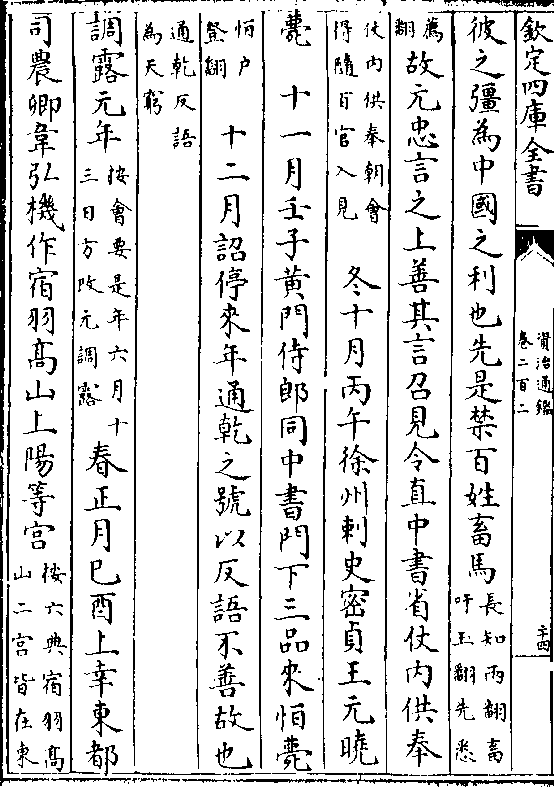 欽定四庫全書
資治通鑑
卷二百二
二十四
彼之彊為中國之利也先是禁百姓畜馬長知兩翻畜
吁玉翻先悉
薦翻故元忠言之上善其言召見令直中書省仗內供奉
仗内供奉朝會
得隨百官入見
冬十月丙午徐州刺史密貞王元曉
薨十一月壬子黃門侍郎同中書門下三品來恒薨
恒户
登翻
十二月詔停來年通乾之號以反語不善故也
通乾反語
為天窮
調露元年按會要是年六月十
三日方改元調露
春正月己酉上幸東都
司農卿韋弘機作宿羽高山上陽等宮按六典宿羽高
山二宮皆在東